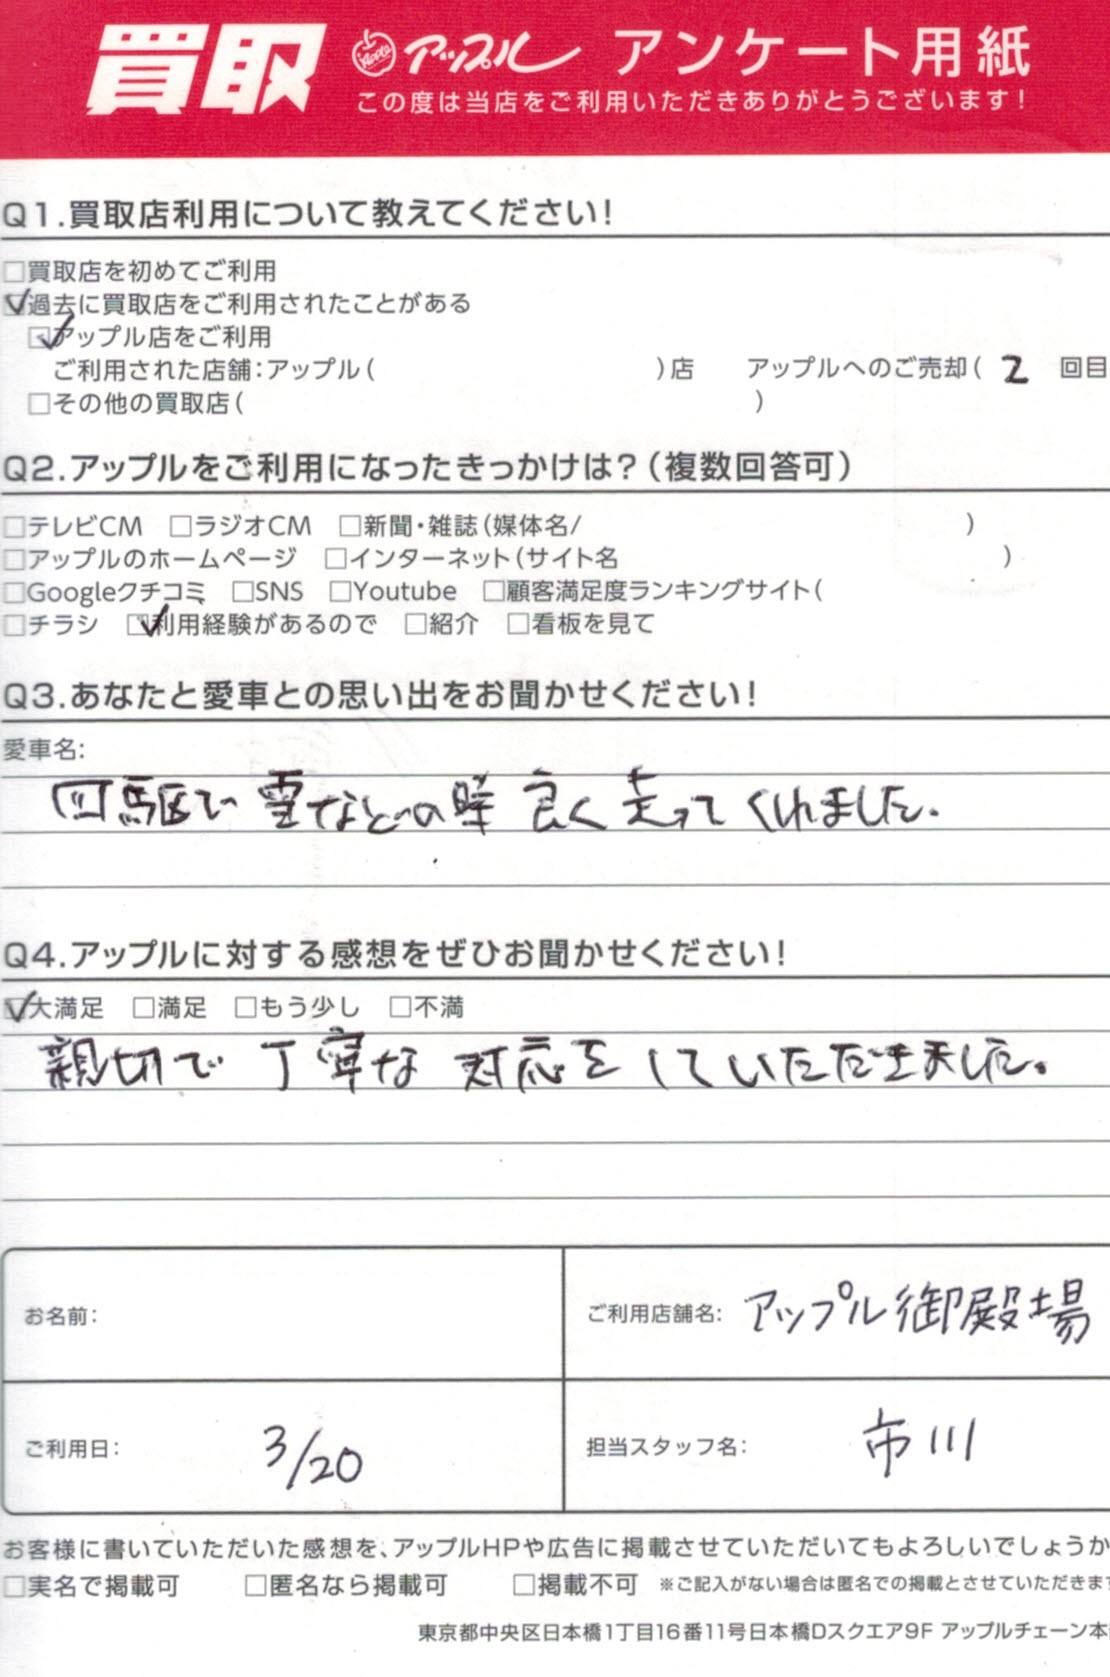 買取 Apple アップル アンケート用紙
この度は当店をご利用いただきありがとうございます！
Q1.買取店利用について教えてください！
□買取店を初めてご利用
☑過去に買取店をご利用されたことがある
☑アップル店をご利用
ご利用された店舗：アップル（　）店　アップルへのご売却（ 2 回目
□その他の買取店（　）
Q2.アップルをご利用になったきっかけは？（複数回答可）
□テレビCM □ラジオCM □新聞・雑誌（媒体名/　）
□アップルのホームページ □インターネット（サイト名　）
□Googleクチコミ □SNS □Youtube □顧客満足度ランキングサイト（
□チラシ ☑利用経験があるので □紹介 □看板を見て
Q3.あなたと愛車との思い出をお聞かせください！
愛車名：
四駆で雪などの時良く走ってくれました。
Q4.アップルに対する感想をぜひお聞かせください！
☑大満足 □満足 □もう少し □不満
親切で丁寧な対応をしていただきました。
お名前：
ご利用店舗名： アップル御殿場
ご利用日： 3/20
担当スタッフ名： 市川
お客様に書いていただいた感想を、アップルHPや広告に掲載させていただいてもよろしいでしょうか
□実名で掲載可 □匿名なら掲載可 □掲載不可 ※ご記入がない場合は匿名での掲載とさせていただきます
東京都中央区日本橋1丁目16番11号日本橋Dスクエア9F アップルチェーン本